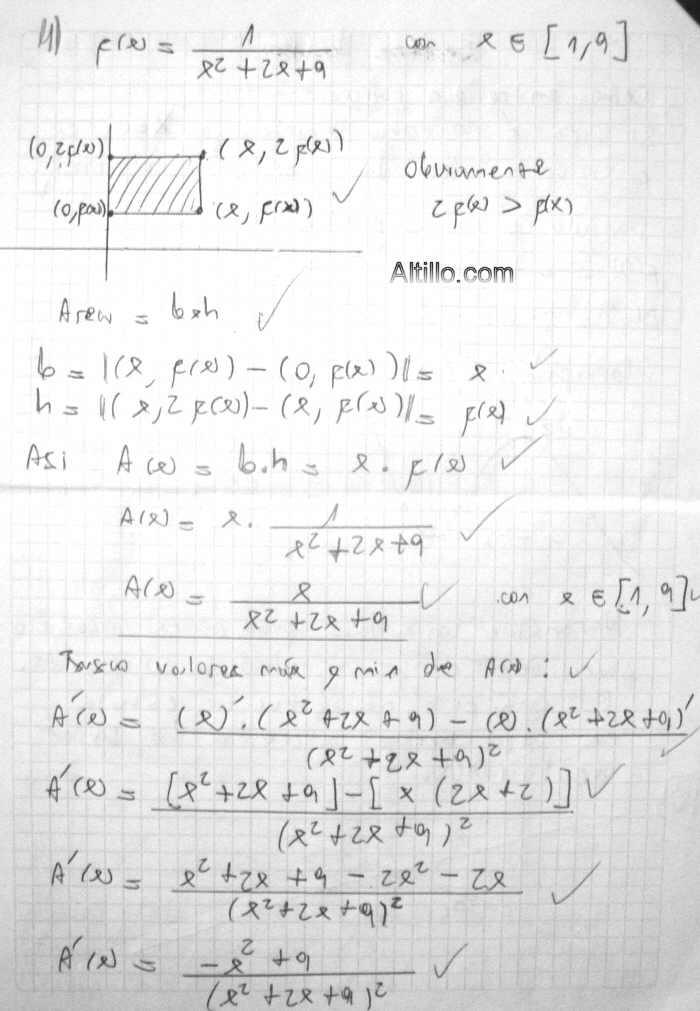 4) f(x) = 1 / x² + 2x + 9 con x ∈ [1, 9]
(0, 2f(x)) (x, 2f(x))
(0, f(x)) (x, f(x)) ✓
Obviamente
2f(x) > f(x)
Altillo.com
Area = b×h ✓
b = ||(x, f(x)) - (0, f(x))|| = x ✓
h = ||(x, 2f(x)) - (x, f(x))|| = f(x) ✓
Asi A(x) = b.h = x . f(x) ✓
A(x) = x . 1 / x² + 2x + 9 ✓
A(x) = x / x² + 2x + 9 ✓ con x ∈ [1, 9] ✓
Busco valores máx y min de A(x) : ✓
A'(x) = (x)' . (x² + 2x + 9) - (x) . (x² + 2x + 9)' / (x² + 2x + 9)² ✓
A'(x) = [x² + 2x + 9] - [x (2x + 2)] / (x² + 2x + 9)² ✓
A'(x) = x² + 2x + 9 - 2x² - 2x / (x² + 2x + 9)² ✓
A'(x) = -x² + 9 / (x² + 2x + 9)² ✓